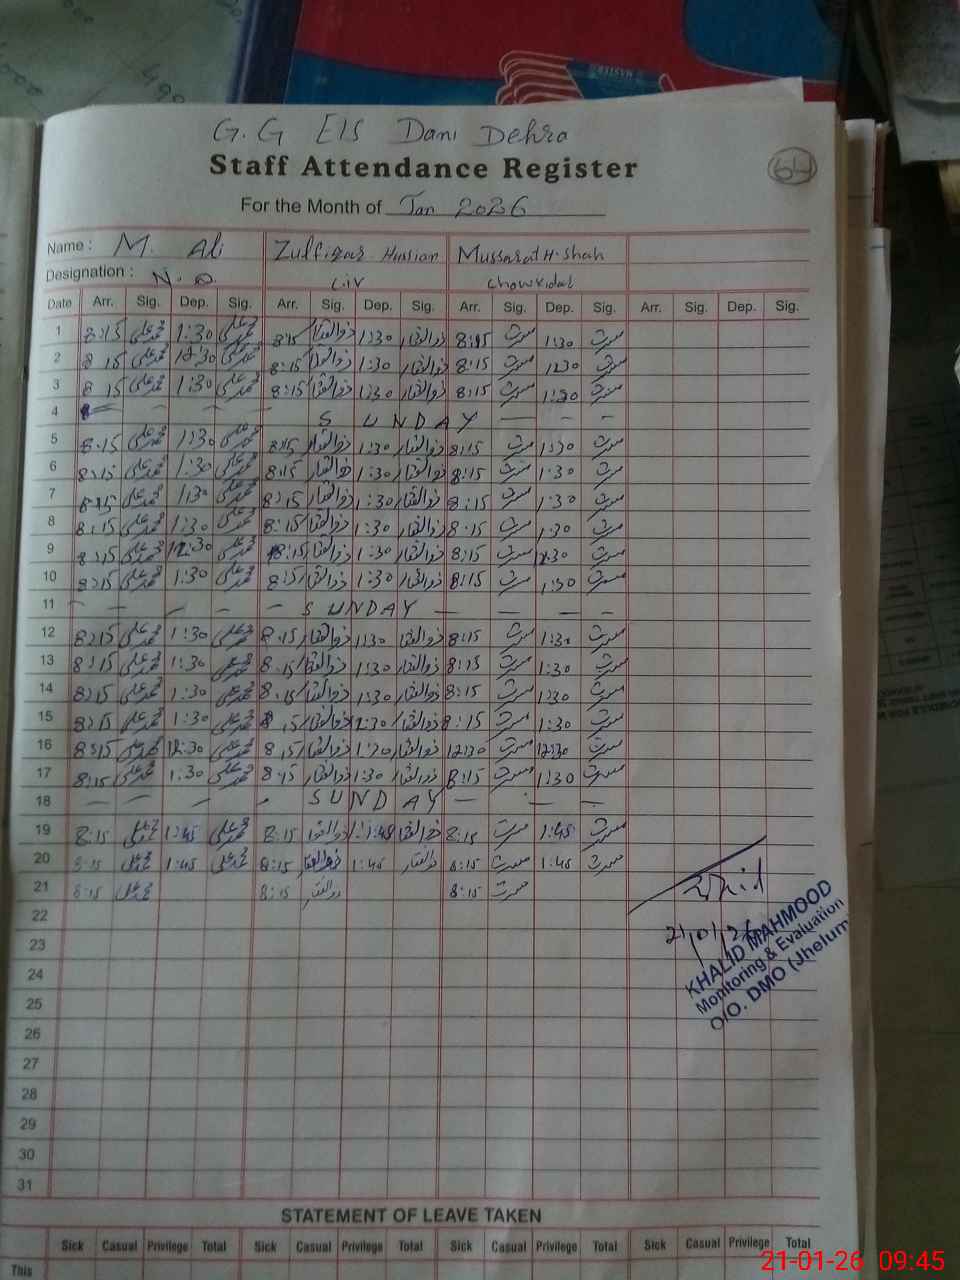 G.G E/S Dani Dehra
Staff Attendance Register
64
For the Month of Jan 2026
Name : M. Ali Zulfiqar Hussian Mussarat H. Shah
Designation : N.Q. C/IV Chowkidar
Date Arr. Sig. Dep. Sig. Arr. Sig. Dep. Sig. Arr. Sig. Dep. Sig. Arr. Sig. Dep. Sig.
1 8:15 محمد علی 1:30 محمد علی 8:15 ذوالفقار 1:30 ذوالفقار 8:15 مسرت 1:30 مسرت
2 8 15 محمد علی 12:30 محمد علی 8:15 ذوالفقار 1:30 ذوالفقار 8:15 مسرت 1:30 مسرت
3 8 15 محمد علی 1:30 محمد علی 8:15 ذوالفقار 1:30 ذوالفقار 8:15 مسرت 1:30 مسرت
4 — — — — S U N D A Y — — —
5 8:15 محمد علی 1:30 محمد علی 8:15 ذوالفقار 1:30 ذوالفقار 8:15 مسرت 1:30 مسرت
6 8:15 محمد علی 1:30 محمد علی 8:15 ذوالفقار 1:30 ذوالفقار 8:15 مسرت 1:30 مسرت
7 8:15 محمد علی 1:30 محمد علی 8:15 ذوالفقار 1:30 ذوالفقار 8:15 مسرت 1:30 مسرت
8 8:15 محمد علی 1:30 محمد علی 8:15 ذوالفقار 1:30 ذوالفقار 8:15 مسرت 1:30 مسرت
9 8:15 محمد علی 12:30 محمد علی 8:15 ذوالفقار 1:30 ذوالفقار 8:15 مسرت 12:30 مسرت
10 8:15 محمد علی 1:30 محمد علی 8:15 ذوالفقار 1:30 ذوالفقار 8:15 مسرت 1:30 مسرت
11 — — — — — S U N D A Y — — — —
12 8:15 محمد علی 1:30 محمد علی 8:15 ذوالفقار 1:30 ذوالفقار 8:15 مسرت 1:30 مسرت
13 8:15 محمد علی 1:30 محمد علی 8:15 ذوالفقار 1:30 ذوالفقار 8:15 مسرت 1:30 مسرت
14 8:15 محمد علی 1:30 محمد علی 8:15 ذوالفقار 1:30 ذوالفقار 8:15 مسرت 1:30 مسرت
15 8:15 محمد علی 1:30 محمد علی 8:15 ذوالفقار 12:30 ذوالفقار 8:15 مسرت 1:30 مسرت
16 8:15 محمد علی 12:30 محمد علی 8:15 ذوالفقار 1:30 ذوالفقار 12:30 مسرت 12:30 مسرت
17 8:15 محمد علی 1:30 محمد علی 8:15 ذوالفقار 1:30 ذوالفقار 8:15 مسرت 1:30 مسرت
18 — — — S U N D A Y — — —
19 8:15 محمد علی 1:45 محمد علی 8:15 ذوالفقار 1:45 ذوالفقار 8:15 مسرت 1:45 مسرت
20 8:15 محمد علی 1:45 محمد علی 8:15 ذوالفقار 1:45 ذوالفقار 8:15 مسرت 1:45 مسرت
21 8:15 محمد علی 8:15 ذوالفقار 8:15 مسرت
22
21/01/26
23
KHALID MAHMOOD
Monitoring & Evaluation
O/O. DMO (Jhelum
24
25
26
27
28
29
30
31
STATEMENT OF LEAVE TAKEN
Sick Casual Privilege Total Sick Casual Privilege Total Sick Casual Privilege Total Sick Casual Privilege Total
This
21-01-26 09:45